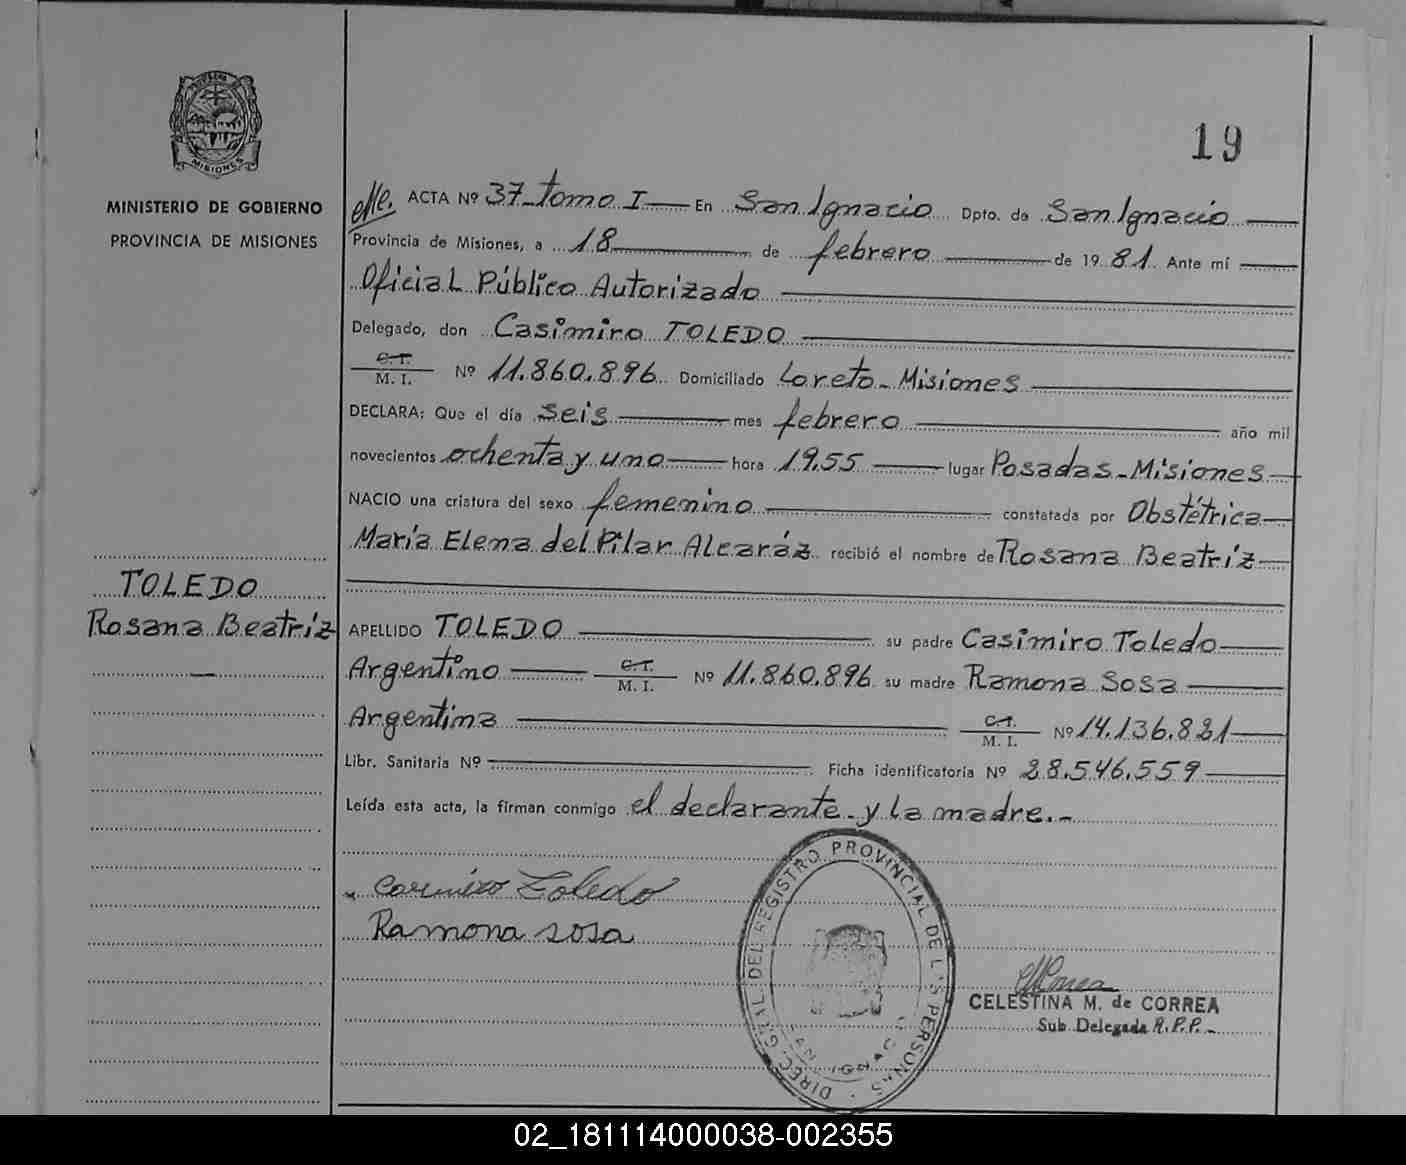 19
MISIONES
MINISTERIO DE GOBIERNO
PROVINCIA DE MISIONES
TOLEDO
Rosana Beatriz
ACTA Nº 37-tomo I En San Ignacio Dpto. de San Ignacio
Provincia de Misiones, a 18 de febrero de 1981. Ante mí
Oficial Público Autorizado
Delegado, don Casimiro TOLEDO
C. I.
M. I. Nº 11.860.896 Domiciliado Loreto-Misiones
DECLARA: Que el día seis mes febrero año mil
novecientos ochenta y uno hora 19.55 lugar Posadas-Misiones
NACIO una criatura del sexo femenino constatada por Obstétrica
María Elena del Pilar Alcaráz recibió el nombre de Rosana Beatríz
APELLIDO TOLEDO su padre Casimiro Toledo
Argentino C. I. M. I. Nº 11.860.896 su madre Ramona Sosa
Argentina C. I. M. I. Nº 14.136.821
Libr. Sanitaria Nº Ficha identificatoria Nº 28.546.559
Leída esta acta, la firman conmigo el declarante y la madre.-
Casimiro Toledo
Ramona sosa
DIREC. GRAL. DEL REGISTRO PROVINCIAL DE LAS PERSONAS
SAN IGNACIO
CELESTINA M. de CORREA
Sub Delegada R.P.P.-
02_181114000038-002355